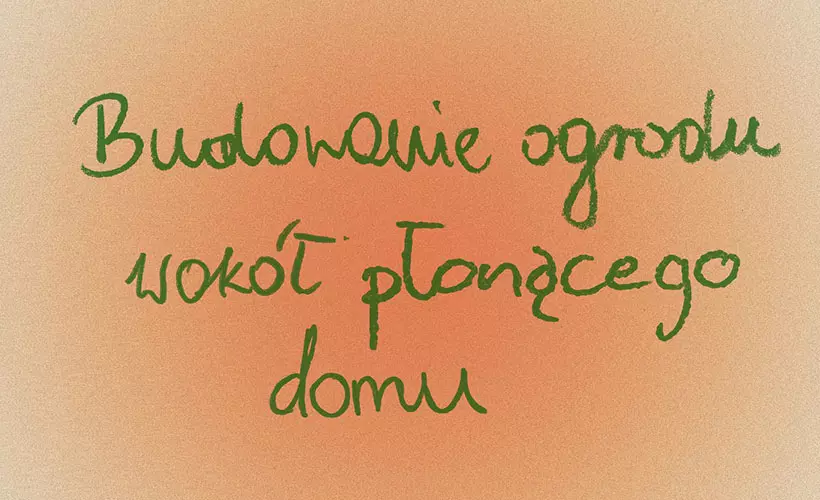 Budowanie ogrodu
wokół płonącego
domu